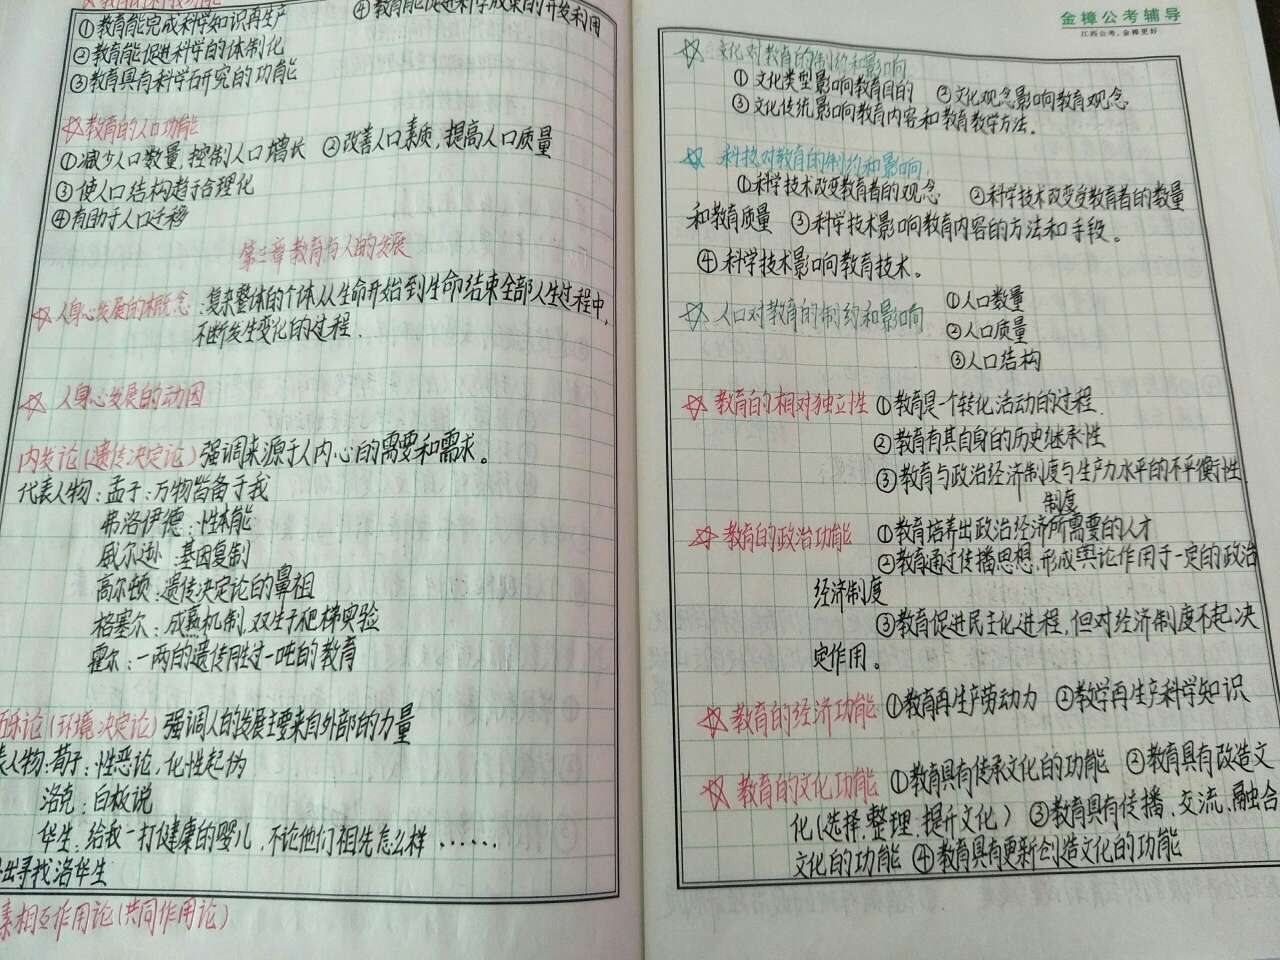 教育的科技功能
①教育能完成科学知识再生产
④教育能促进科学成果的开发利用
②教育能促进科学的体制化
③教育具有科学研究的功能
☆教育的人口功能
①减少人口数量,控制人口增长 ②改善人口素质,提高人口质量
③使人口结构趋于合理化
④有助于人口迁移
第三章教育与人的发展
☆人身心发展的概念:复杂整体的个体从生命开始到生命结束全部人生过程中,
不断发生变化的过程.
☆ 人身心发展的动因
内发论(遗传决定论)强调来源于人内心的需要和需求。
代表人物:孟子:万物皆备于我
弗洛伊德:性本能
威尔逊:基因复制
高尔顿:遗传决定论的鼻祖
格塞尔:成熟机制,双生子爬梯实验
霍尔:一两的遗传胜过一吨的教育
论(环境决定论)强调人的发展主要来自外部的力量
表人物:荀子:性恶论,化性起伪
洛克:白板说
华生:给我一打健康的婴儿,不论他们祖先怎么样······
出寻找洛华生
素相互作用论(共同作用论)
金樟公考辅导
江西公考,金樟更好
☆ 文化对教育的制约和影响
①文化类型影响教育目的 ②文化观念影响教育观念
③文化传统影响教育内容和教育教学方法.
☆ 科技对教育的制约和影响
①科学技术改变教育者的观念 ②科学技术改变受教育者的数量
和教育质量 ③科学技术影响教育内容的方法和手段。
④科学技术影响教育技术。
☆人口对教育的制约和影响 ①人口数量
②人口质量
③人口结构
☆教育的相对独立性 ①教育是一个转化活动的过程.
②教育有其自身的历史继承性
③教育与政治经济制度与生产力水平的不平衡性.
制度
☆教育的政治功能 ①教育培养出政治经济所需要的人才
②教育通过传播思想,形成舆论作用于一定的政治
经济制度
③教育促进民主化进程,但对经济制度不起决
定作用。
☆教育的经济功能 ①教育再生产劳动力 ②教学再生产科学知识
☆教育的文化功能 ①教育具有传承文化的功能 ②教育具有改造文
化(选择,整理,提升文化) ③教育具有传播、交流、融合
文化的功能 ④教育具有更新创造文化的功能